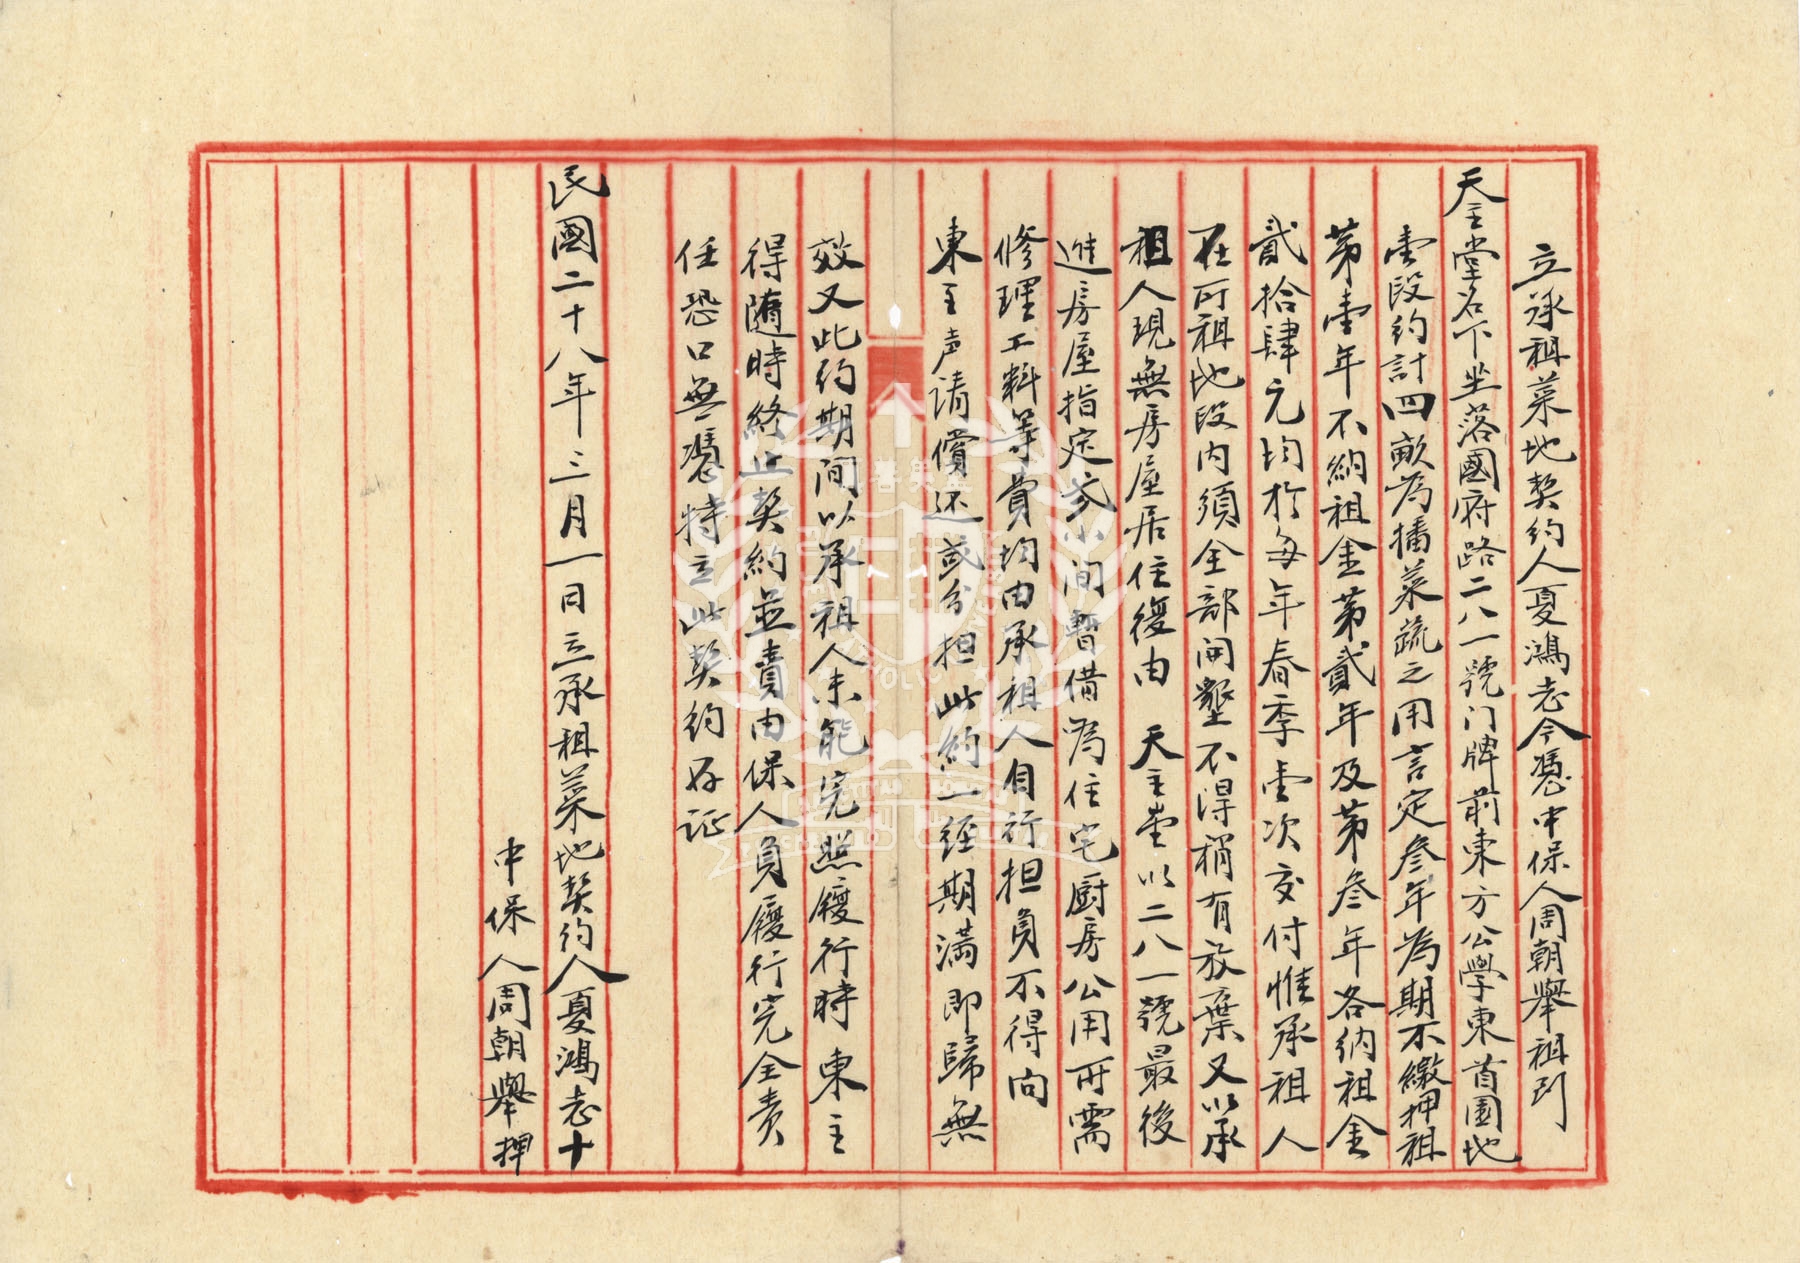 立承租菜地契约人夏鴻志今憑中保人周朝舉租到
天主堂名下坐落國府路二八一號门牌前東方公學東首園地
壹段约計四畝為播菜蔬之用言定叁年為期不繳押租
第壹年不納租金第貳年及第叁年各纳租金
貳拾肆元均於每年春季壹次交付惟承租人
在所租地段内須全部開墾不得稍有放棄又以承
租人現無房屋居住復由 天主堂以二八一號最後
進房屋指定叁小间暫借為住宅厨房公用所需
修理工料等費均由承租人自行担負不得向
東主声请償还或分担此約一經期满即歸無
效又此约期間以承租人未能完照履行時東主
得随時終止契約並責由保人負履行完全责
任恐口無憑特立此契约存证
民國二十八年三月一日立承租菜地契约人夏鴻志十
中保人周朝舉押